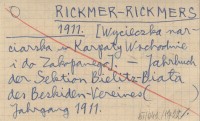 RICKMER-RICKMERS
1911. [Wycieczka nar-
ciarska w Karpaty Wschodnie
i do Zakopanego]. — Jahrbuch
der Sektion Bielitz-Biala
des Beskiden-Vereines
Jahrgang 1911.